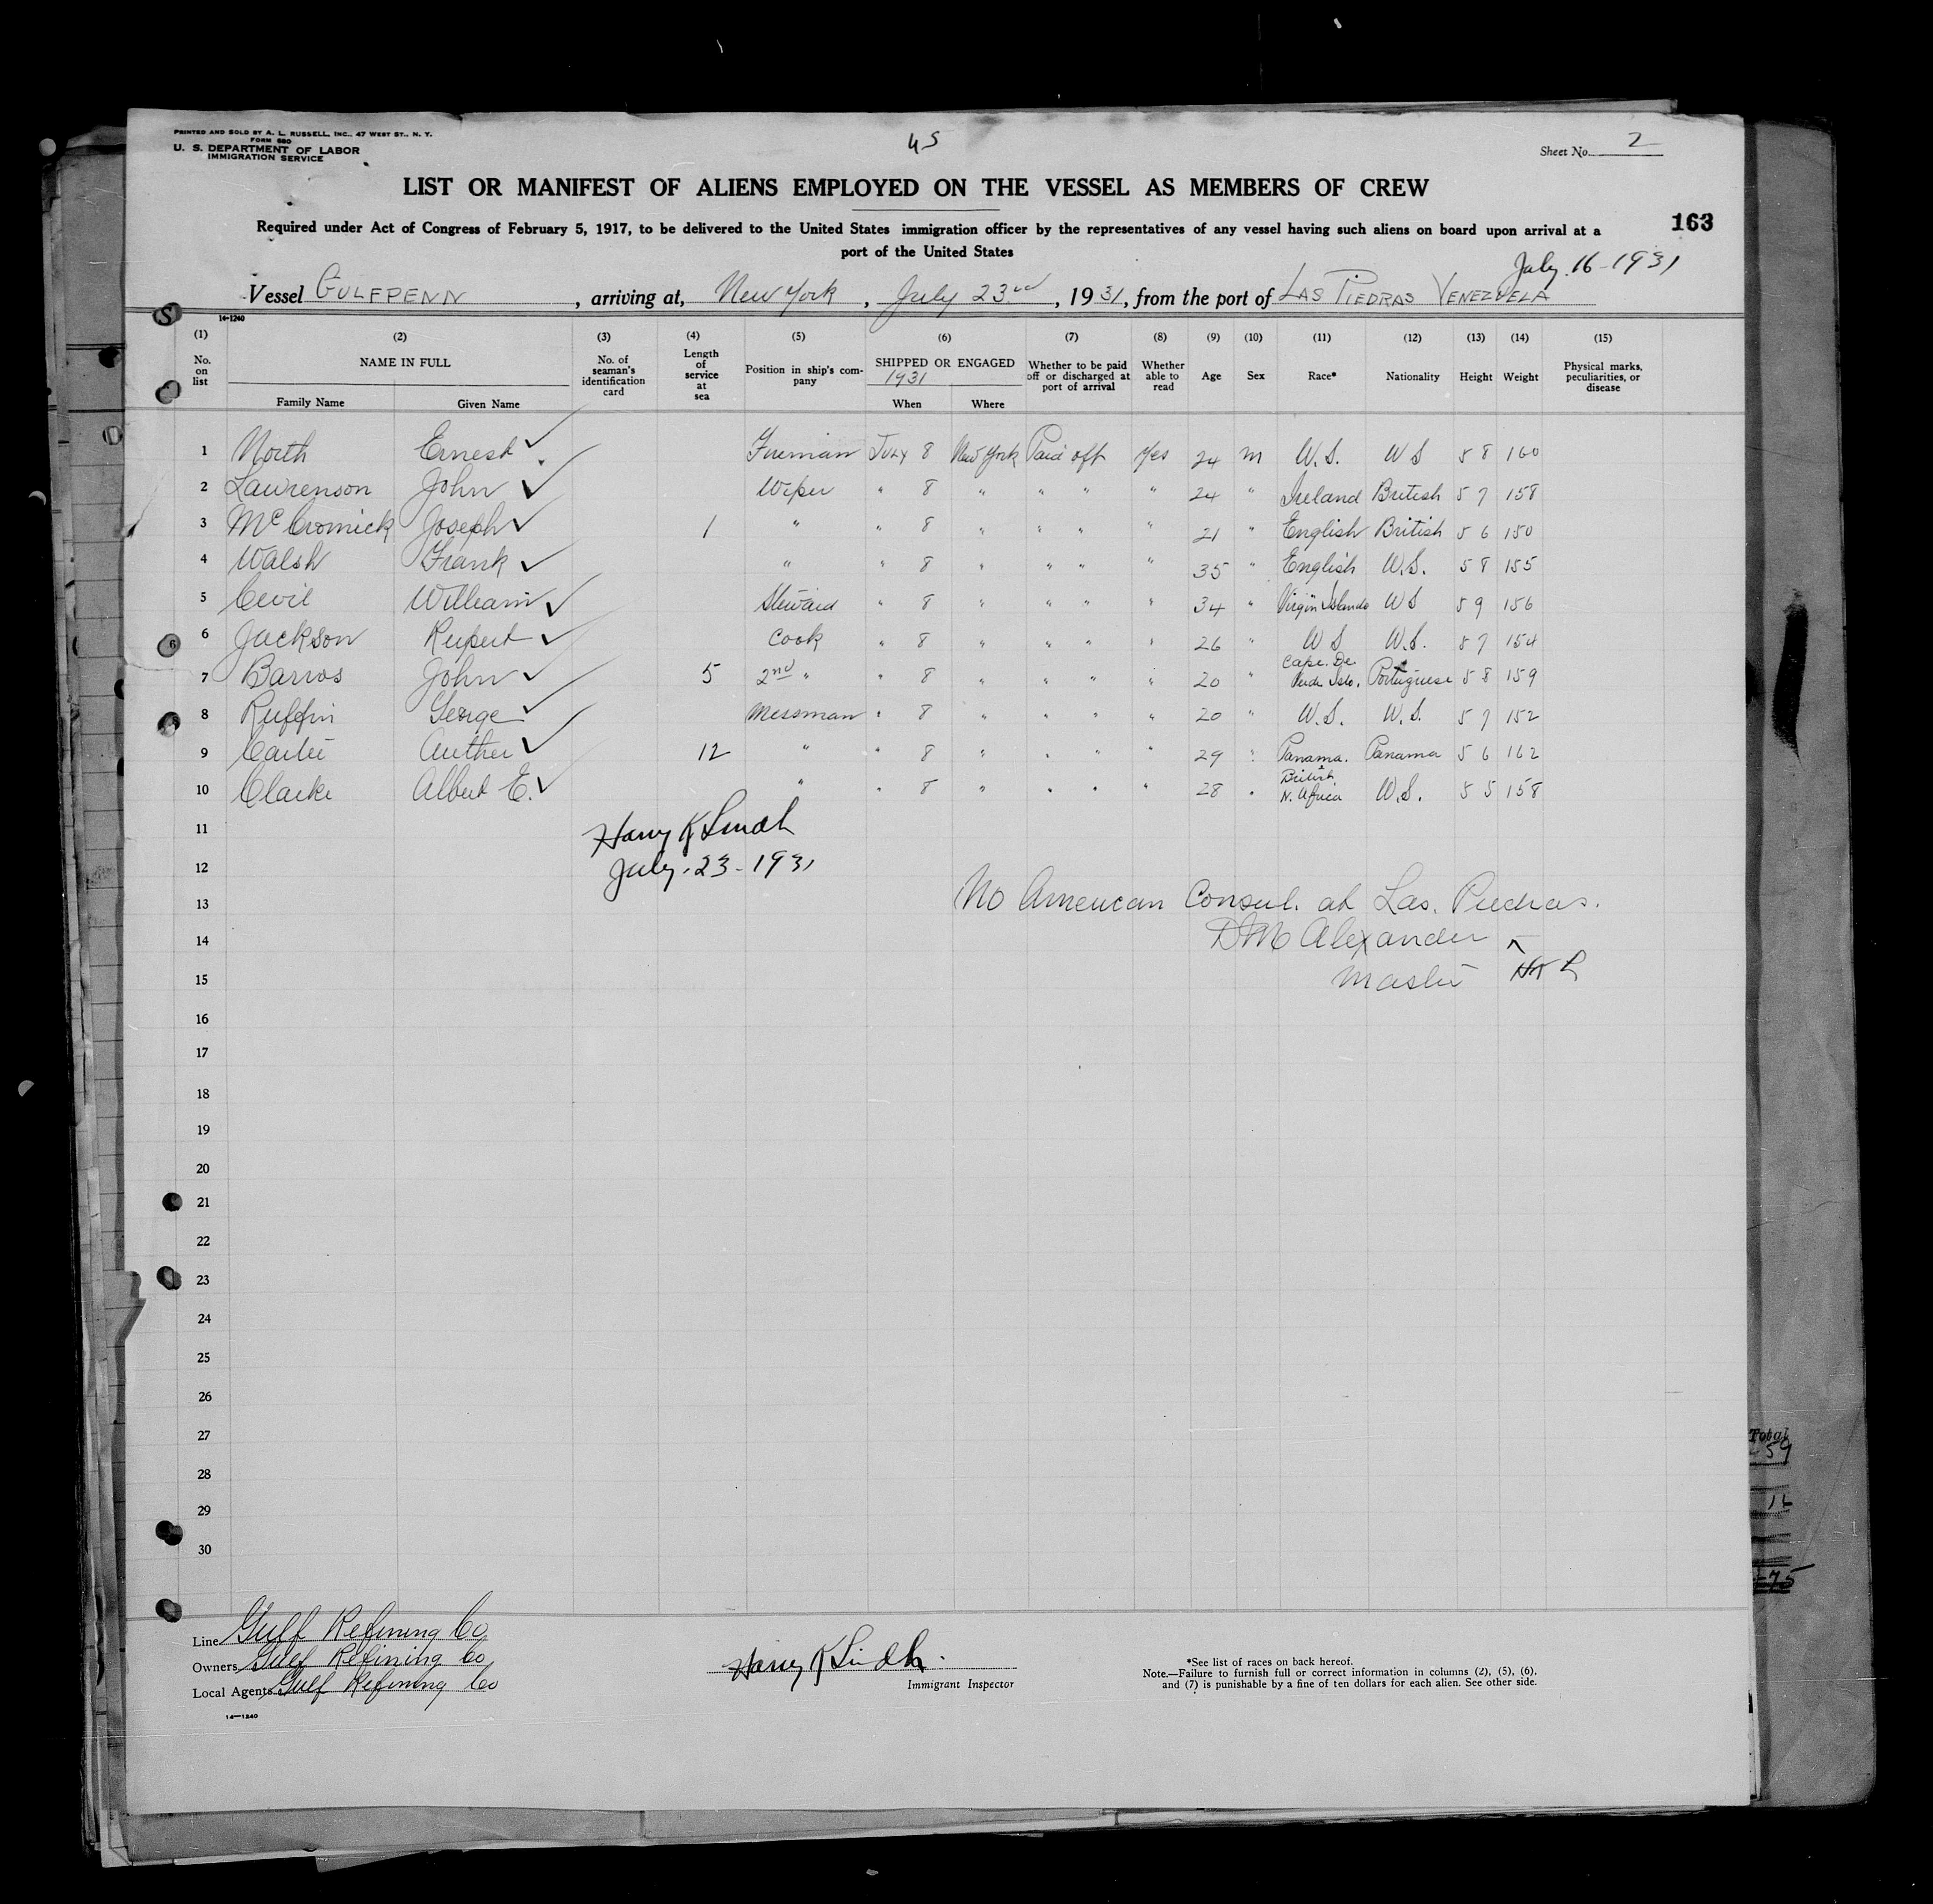 PRINTED AND SOLD BY A. L. RUSSELL, INC., 47 WEST ST., N. Y.
FORM 680
U. S. DEPARTMENT OF LABOR
IMMIGRATION SERVICE
45
Sheet No. 2
LIST OR MANIFEST OF ALIENS EMPLOYED ON THE VESSEL AS MEMBERS OF CREW
163
Required under Act of Congress of February 5, 1917, to be delivered to the United States immigration officer by the representatives of any vessel having such aliens on board upon arrival at a
port of the United States
July 16-1931
Vessel GULFPENN, arriving at, New York, July 23rd, 1931, from the port of LAS PIEDRAS VENEZUELA
14-1240
(1) (2) (3) (4) (5) (6) (7) (8) (9) (10) (11) (12) (13) (14) (15)
No. on list NAME IN FULL Family Name Given Name No. of seaman's identification card Length of service at sea Position in ship's company SHIPPED OR ENGAGED 1931 When Where Whether to be paid off or discharged at port of arrival Whether able to read Age Sex Race* Nationality Height Weight Physical marks, peculiarities, or disease
1 North Ernest ✓ Fireman July 8 New York Paid off Yes 24 m U.S. U S 5 8 160
2 Lawrenson John ✓ Wiper " 8 " " " " 24 " Ireland British 5 7 158
3 McCromick Joseph ✓ 1 " " 8 " " " " 21 " English British 5 6 150
4 Walsh Frank ✓ " " 8 " " " " 35 " English U.S. 5 8 155
5 Cecil William ✓ Steward " 8 " " " " 34 " Virgin Islands U S 5 9 156
6 Jackson Rupert ✓ Cook " 8 " " " " 26 " U S U.S. 5 7 154
7 Barros John ✓ 5 2nd " " 8 " " " " 20 " Cape. De Verde Isls. Portuguese 5 8 159
8 Ruffin George ✓ Messman " 8 " " " " 20 " U.S. U.S. 5 7 152
9 Carter Auther ✓ 12 " " 8 " " " " 29 " Panama. Panama 5 6 162
10 Clarke Albert E. ✓ " " 8 " " " " 28 " British N. Africa U.S. 5 5 158
11
Harry K Lindh
12
July-23-1931
13
No American Consul. at Las. Piedras.
14
DM Alexander
15
Master HKL
16
17
18
19
20
21
22
23
24
25
26
27
28
29
30
Total
59
75
Line Gulf Refining Co
Owners Gulf Refining Co
Local Agents Gulf Refining Co
14-1240
Harry K Lindh.
Immigrant Inspector
*See list of races on back hereof.
Note.—Failure to furnish full or correct information in columns (2), (5), (6),
and (7) is punishable by a fine of ten dollars for each alien. See other side.